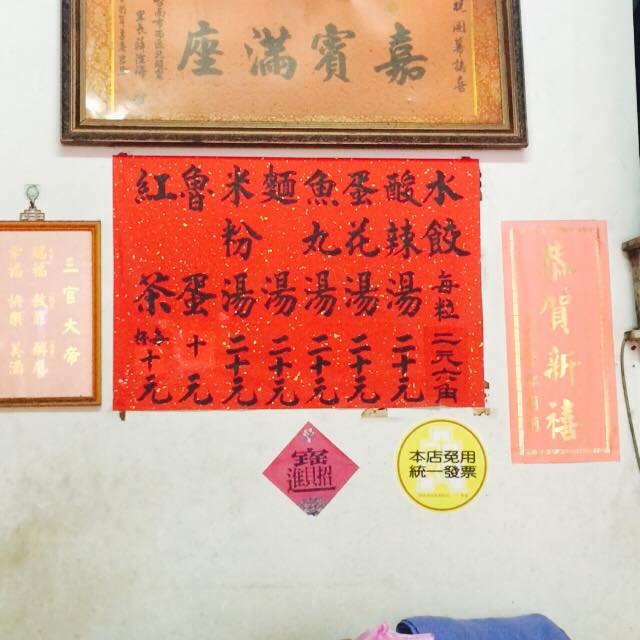 嘉賓滿座
水餃 每粒 二元六角
酸辣湯 二十元
蛋花湯 二十元
魚丸湯 二十元
麵湯 二十元
米粉湯 二十元
魯蛋 十元
紅茶 每杯 十元
恭賀新禧
三官大帝
招財進寶
本店免用
統一發票